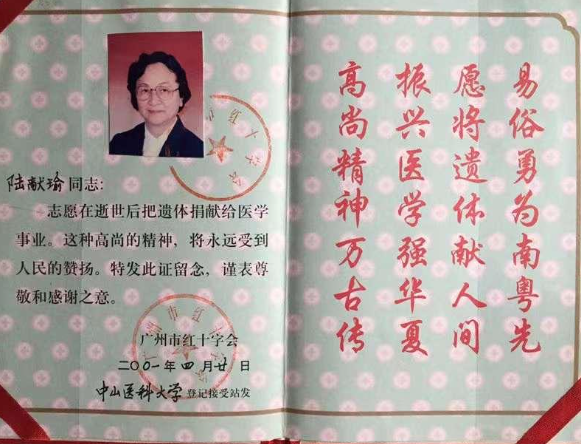 陆献瑜同志：
志愿在逝世后把遗体捐献给医学
事业。这种高尚的精神，将永远受到
人民的赞扬。特发此证留念，谨表尊
敬和感谢之意。
广州市红十字会
二〇〇一年四月廿日
中山医科大学登记接受站发
易俗勇为南粤先
愿将遗体献人间
振兴医学强华夏
高尚精神万古传
市红十字会
广州市红十字会